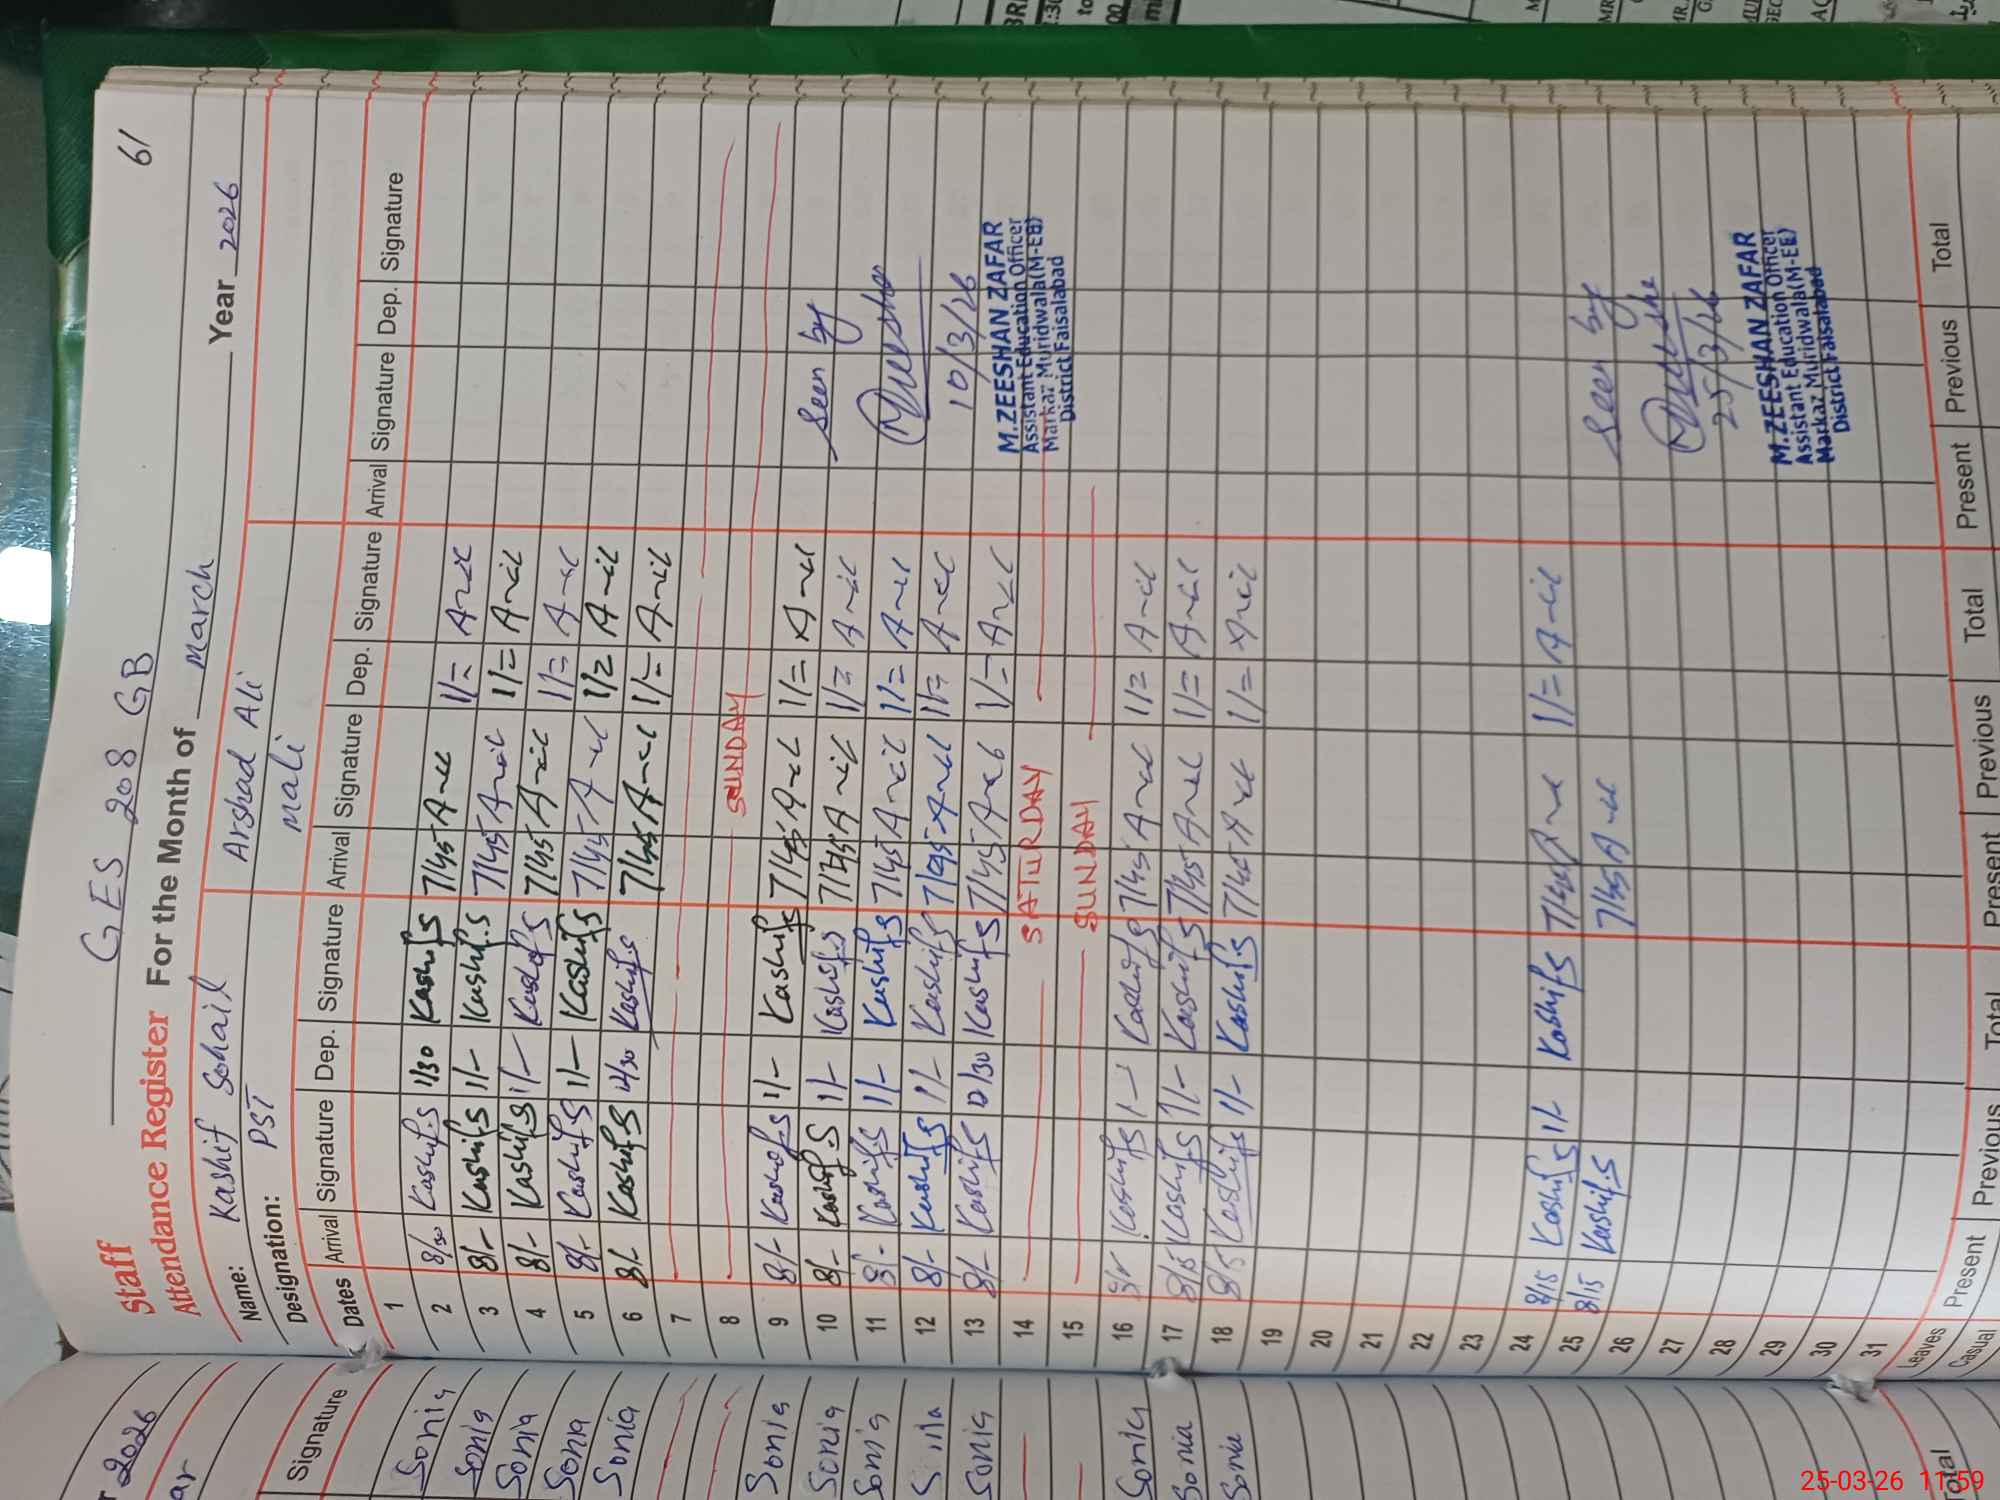 GES 208 GB
61
Staff
Attendance Register For the Month of March Year 2026
Name: Kashif Sohail Arshad Ali
Designation: PST mali
Dates Arrival Signature Dep. Signature Arrival Signature Dep. Signature Arrival Signature Dep. Signature
1
2 8/30 Kashif.S 1/30 Kashif S 7/45 1/=
3 8/- Kashif S 1/- Kashif.S 7/45 1/=
4 8/- Kashif.S 1/- Kashif S 7/45 1/=
5 8/- Kashif.S 1/- Kashif S 7/45 1/=
6 8/- Kashif.S Kashif.S 7/45 1/=
7
8 SUNDAY
9 8/- Kashif.S 1/- Kashif.S 7/45 1/=
10 8/- Kashif.S 1/- Kashif.S 7/45 1/= Seen by
11 8/- Kashif S 1/- Kashif S 7/45 1/=
12 8/- Kashif S 1/- Kashif S 7/45 1/=
13 8/- Kashif S Kashif S 7/45 1/=
10/3/26
M.ZEESHAN ZAFAR
Assistant Education Officer
Markaz Muridwala(M-EE)
District Faisalabad
14 SATURDAY
15 SUNDAY
16 Kashif S 1- Kashif S 7/45 1/=
17 8/15 Kashif S 1/- Kashif S 7/45 1/=
18 8/15 Kashif S 1/- Kashif S 7/45 1/=
19
20
21
22
23
24 8/15 Kashif S 1/- Kashif S 7/45 1/=
25 8/15 Kashif.S 7/45
Seen by
25/3/26
M.ZEESHAN ZAFAR
Assistant Education Officer
Markaz Muridwala(M-EE)
District Faisalabad
26
27
28
29
30
31
Leaves Present Previous Total Present Previous Total Present Previous Total
Casual
2026
Signature
Sonia
Sonia
Sonia
Sonia
Sonia
Sonia
Sonia
Sonia
Sonia
Sonia
Sonia
Sonia
Total
25-03-26 11:59